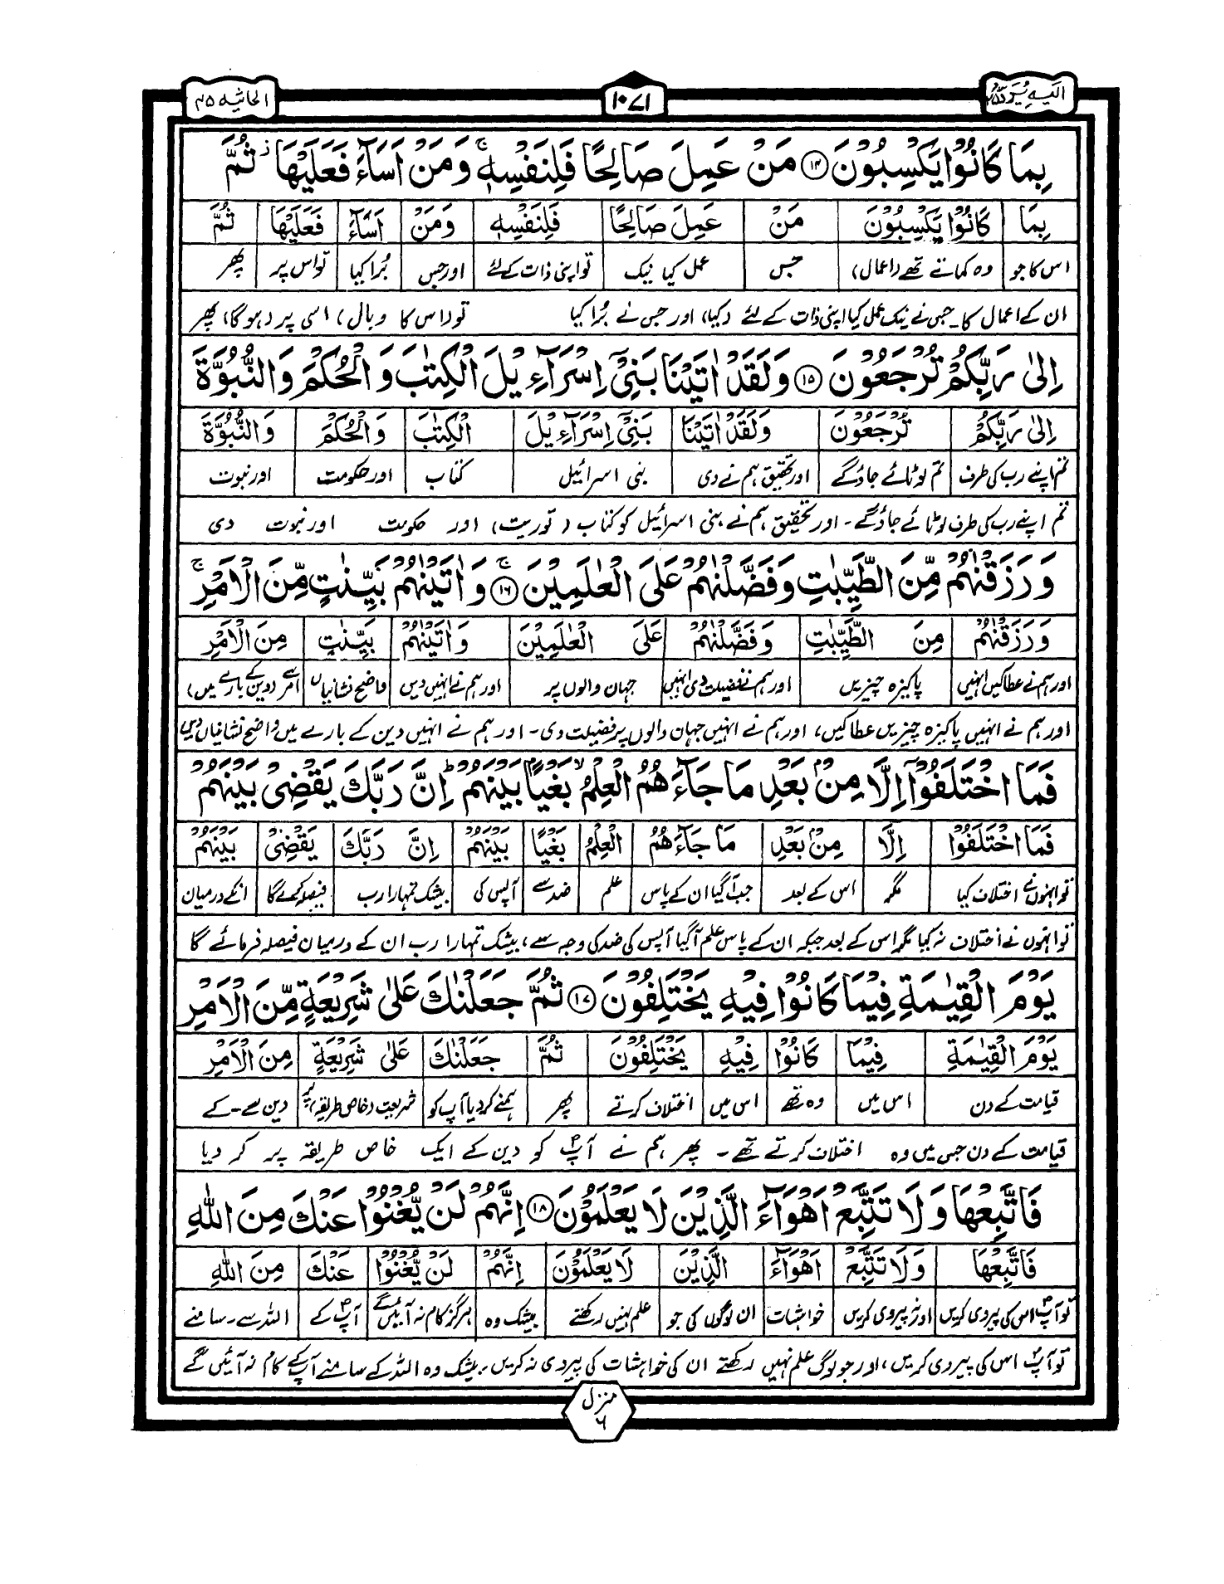 الیه یرد ۲۵
۱۰۷۱
الجاثیه ۴۵
بِمَا كَانُوْا يَكْسِبُوْنَ ۱۴ مَنْ عَمِلَ صَالِحًا فَلِنَفْسِهٖ ۚ وَمَنْ اَسَآءَ فَعَلَيْهَا ۫ ثُمَّ
بِمَا كَانُوْا يَكْسِبُوْنَ مَنْ عَمِلَ صَالِحًا فَلِنَفْسِهٖ وَمَنْ اَسَآءَ فَعَلَيْهَا ثُمَّ
اس کا جو وہ کماتے تھے (اعمال) جس عمل کیا نیک تو اپنی ذات کے لئے اور جس بُرا کیا تو اس پر پھر
ان کے اعمال کا۔ جس نے نیک عمل کیا اپنی ذات کے لئے (کیا)، اور جس نے بُرا کیا تو (اس کا وبال) اسی پر (ہوگا)، پھر
اِلٰى رَبِّكُمْ تُرْجَعُوْنَ ۱۵ وَلَقَدْ اٰتَيْنَا بَنِيْٓ اِسْرَآءِيْلَ الْكِتٰبَ وَالْحُكْمَ وَالنُّبُوَّةَ
اِلٰى رَبِّكُمْ تُرْجَعُوْنَ وَلَقَدْ اٰتَيْنَا بَنِيْٓ اِسْرَآءِيْلَ الْكِتٰبَ وَالْحُكْمَ وَالنُّبُوَّةَ
تم اپنے رب کی طرف تم لوٹائے جاؤ گے اور تحقیق ہم نے دی بنی اسرائیل کتاب اور حکومت اور نبوت
تم اپنے رب کی طرف لوٹائے جاؤ گے۔ اور تحقیق ہم نے بنی اسرائیل کو کتاب (توریت) اور حکومت اور نبوت دی
وَرَزَقْنٰهُمْ مِّنَ الطَّيِّبٰتِ وَفَضَّلْنٰهُمْ عَلَى الْعٰلَمِيْنَ ۚ ۱۶ وَاٰتَيْنٰهُمْ بَيِّنٰتٍ مِّنَ الْاَمْرِ ۚ
وَرَزَقْنٰهُمْ مِنَ الطَّيِّبٰتِ وَفَضَّلْنٰهُمْ عَلَى الْعٰلَمِيْنَ وَاٰتَيْنٰهُمْ بَيِّنٰتٍ مِنَ الْاَمْرِ
اور ہم نے عطا کیں انہیں پاکیزہ چیزیں اور ہم نے فضیلت دی انہیں جہان والوں پر اور ہم نے انہیں دیں واضح نشانیاں امر سے (دین کے بارے میں)
اور ہم نے انہیں پاکیزہ چیزیں عطا کیں، اور ہم نے انہیں جہان والوں پر فضیلت دی۔ اور ہم نے انہیں دین کے بارے میں واضح نشانیاں دیں
فَمَا اخْتَلَفُوْٓا اِلَّا مِنْۢ بَعْدِ مَا جَآءَهُمُ الْعِلْمُ ۙ بَغْيًۢا بَيْنَهُمْ ؕ اِنَّ رَبَّكَ يَقْضِيْ بَيْنَهُمْ
فَمَا اخْتَلَفُوْٓا اِلَّا مِنْۢ بَعْدِ مَا جَآءَهُمُ الْعِلْمُ بَغْيًۢا بَيْنَهُمْ اِنَّ رَبَّكَ يَقْضِيْ بَيْنَهُمْ
تو انہوں نے اختلاف کیا مگر اس کے بعد جب آ گیا ان کے پاس علم ضد سے آپس کی بیشک تمہارا رب فیصلہ کرے گا انکے درمیان
تو انہوں نے اختلاف نہ کیا مگر اس کے بعد جبکہ ان کے پاس علم آ گیا آپس کی ضد کی وجہ سے، بیشک تمہارا رب ان کے درمیان فیصلہ فرمائے گا
يَوْمَ الْقِيٰمَةِ فِيْمَا كَانُوْا فِيْهِ يَخْتَلِفُوْنَ ۱۷ ثُمَّ جَعَلْنٰكَ عَلٰى شَرِيْعَةٍ مِّنَ الْاَمْرِ
يَوْمَ الْقِيٰمَةِ فِيْمَا كَانُوْا فِيْهِ يَخْتَلِفُوْنَ ثُمَّ جَعَلْنٰكَ عَلٰى شَرِيْعَةٍ مِنَ الْاَمْرِ
قیامت کے دن اس میں وہ تھے اس میں اختلاف کرتے پھر ہم نے کر دیا آپ کو شریعت (خاص طریقہ) پر دین سے۔ کے
قیامت کے دن جس میں وہ اختلاف کرتے تھے۔ پھر ہم نے آپؐ کو دین کے ایک خاص طریقہ پر کر دیا
فَاتَّبِعْهَا وَلَا تَتَّبِعْ اَهْوَآءَ الَّذِيْنَ لَا يَعْلَمُوْنَ ۱۸ اِنَّهُمْ لَنْ يُّغْنُوْا عَنْكَ مِنَ اللّٰهِ
فَاتَّبِعْهَا وَلَا تَتَّبِعْ اَهْوَآءَ الَّذِيْنَ لَا يَعْلَمُوْنَ اِنَّهُمْ لَنْ يُّغْنُوْا عَنْكَ مِنَ اللّٰهِ
تو آپؐ اس کی پیروی کریں اور نہ پیروی کریں خواہشات ان لوگوں کی جو علم نہیں رکھتے بیشک وہ ہرگز کام نہ آئیں گے آپؐ کے اللہ سے۔ سامنے
تو آپؐ اس کی پیروی کریں، اور جو لوگ علم نہیں رکھتے ان کی خواہشات کی پیروی نہ کریں۔ بیشک وہ اللہ کے سامنے آپؐ کے کام نہ آئیں گے
منزل
۶